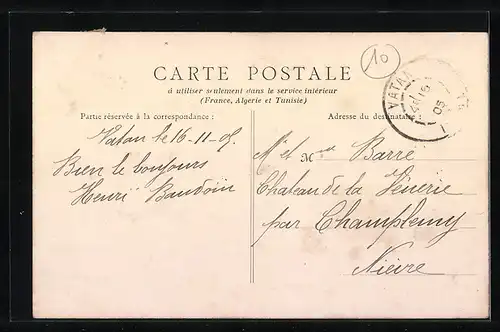 10
CARTE POSTALE
à utiliser seulement dans le service intérieur
(France, Algérie et Tunisie)
Partie réservée à la correspondance :
Adresse du destinataire :
VATAN
16
05
Vatan le 16-11-05
Bien le bonjours
Henri Baudoin
Mr et Mme Barre
Chateau de la Vénerie
par Champlemy
Nièvre